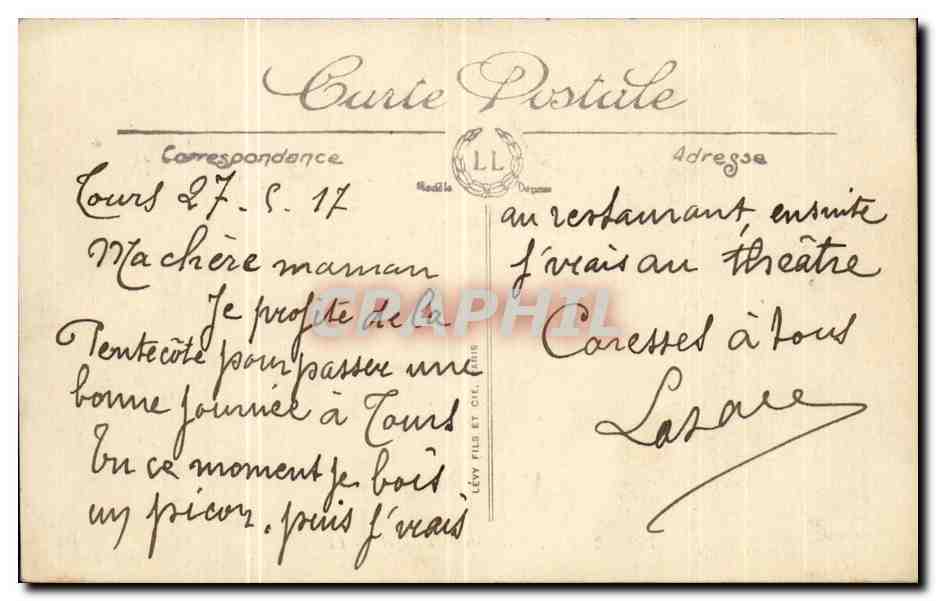 Carte Postale
Correspondance
LL
Adresse
Modèle Déposé
Tours 27. 5. 17
Ma chère maman
Je profite de la
Pentecôte pour passer une
bonne journée à Tours
En ce moment je bois
un picon, puis j'vrais
au restaurant, ensuite
j'vrais au théâtre
Caresses à tous
Lazare
LÉVY FILS ET CIE, PARIS
CRAPHIL